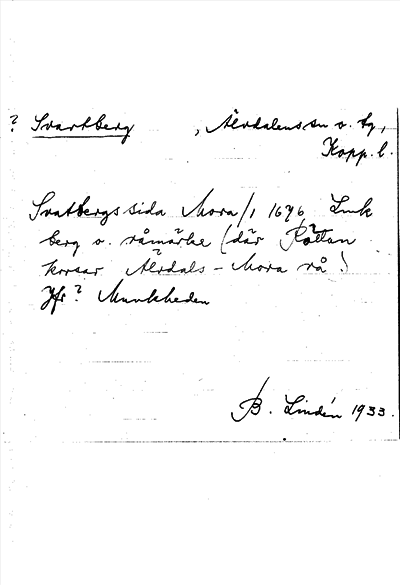 ? Svartberg , Älvdalens sn o. tg,
Kopp. l.
Svatbergssida Mora/1 1696
berg o. råmärke (där Röttan
korsar Älvdals-Mora rå)
Jfr? Munkheden
B. Lindén 1933.